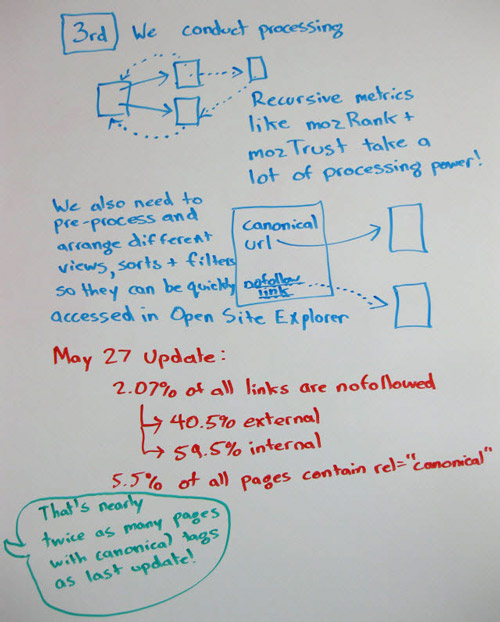 3rd We conduct processing
Recursive metrics
like mozRank +
mozTrust take a
lot of processing power!
We also need to
pre-process and
arrange different
views, sorts + filters
so they can be quickly
accessed in Open Site Explorer
canonical
url
nofollow
link
May 27 Update:
2.07% of all links are nofollowed
40.5% external
59.5% internal
5.5% of all pages contain rel="canonical"
That's nearly
twice as many pages
with canonical tags
as last update!